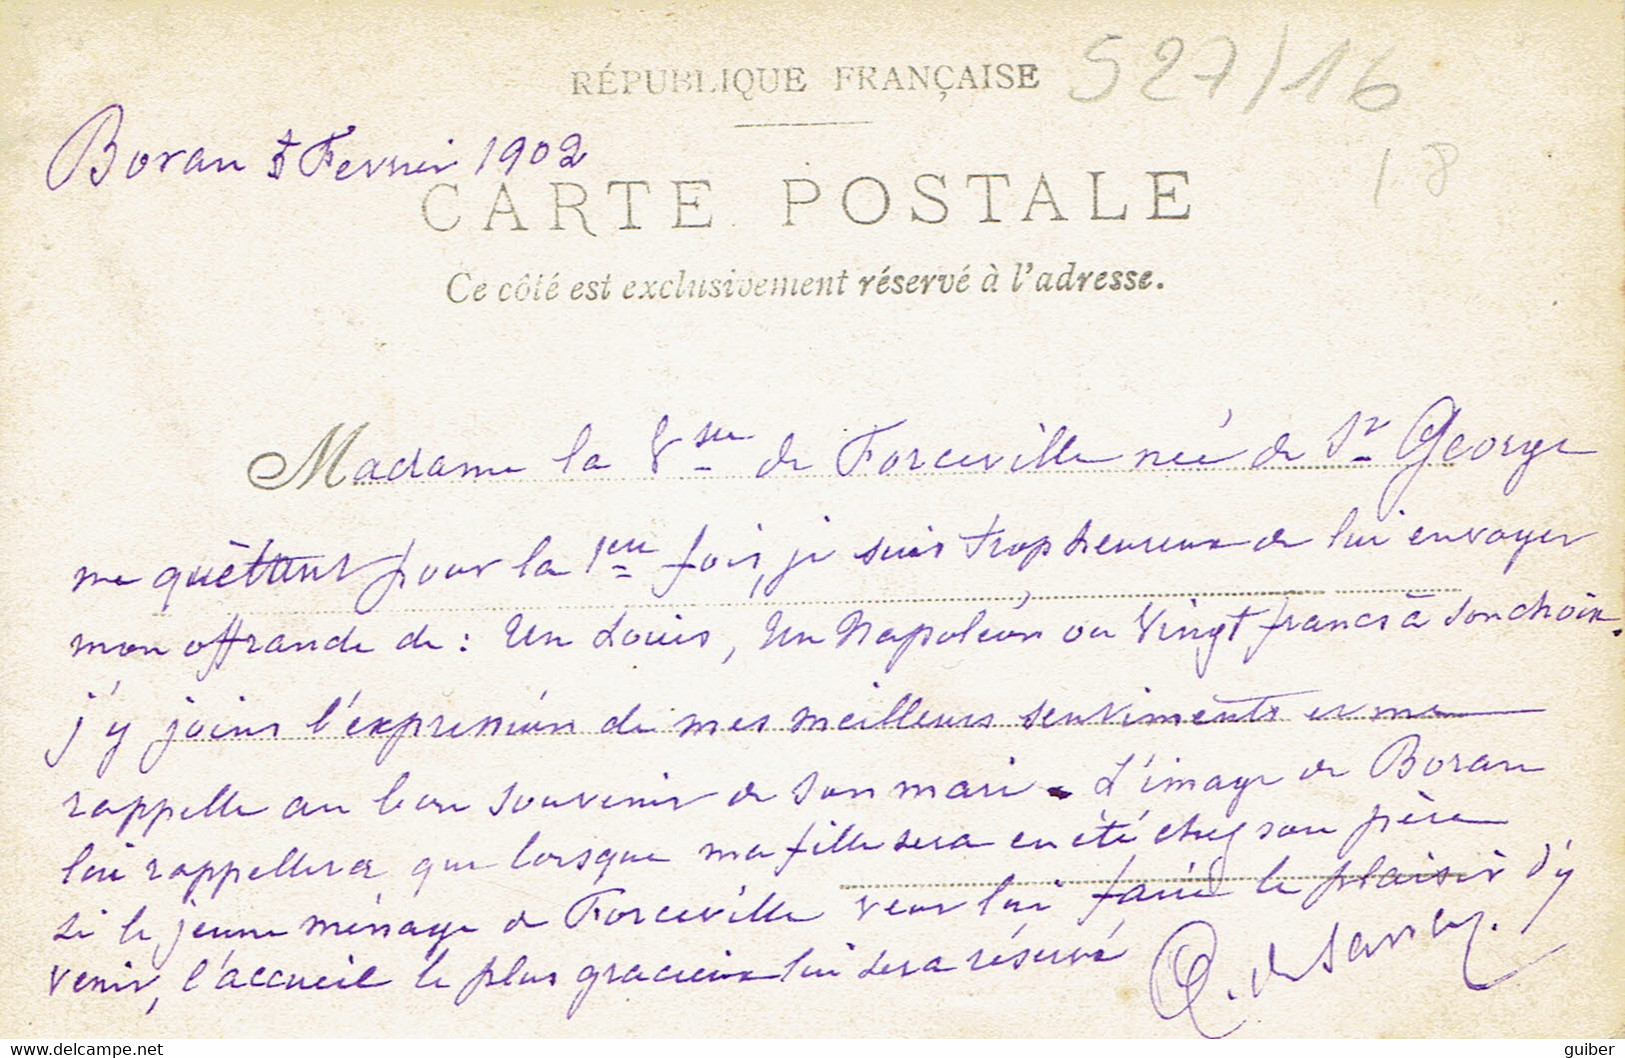 RÉPUBLIQUE FRANÇAISE
527/16
18
Boran 5 Fevrier 1902
CARTE POSTALE
Ce côté est exclusivement réservé à l'adresse.
Madame la Vsse de Forceville née de St George
me quêtant pour la 1ere fois, je suis trop heureux de lui envoyer
mon offrande de : Un Louis, Un Napoléon ou Vingt francs à son choix.
j'y joins l'expression de mes meilleurs sentiments et me
rappelle au bon souvenir de son mari - L'image de Boran
lui rappellera que lorsque ma fille sera en été chez son père
si le jeune ménage de Forceville veut lui faire le plaisir d'y
venir, l'accueil le plus gracieux lui sera réservé
de
guiber
www.delcampe.net